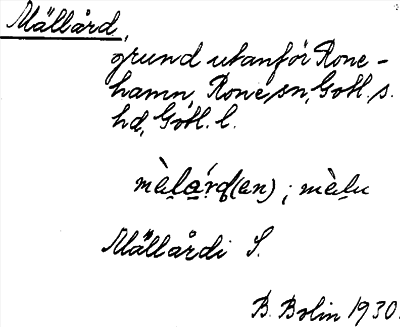 Mällård,
grund utanför Rone-
hamn, Rone sn, Gotl. s.
hd, Gotl. l.
mèlárd(en) ; mèlu
Mällårdi S.
B. Bolin 1930.